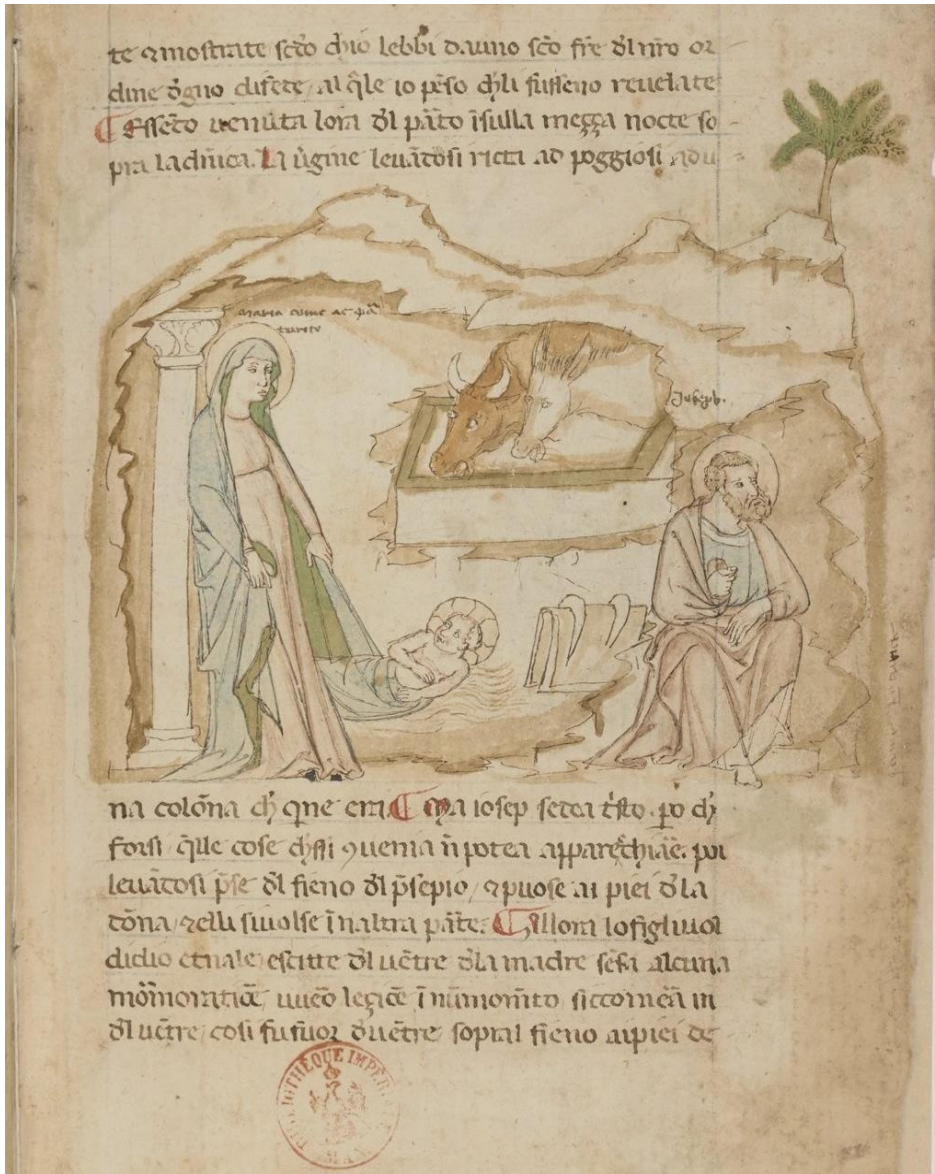 te ⁊ mostrate sc̄do chio lebbi da uno sc̄o fr̄e dl nr̄o or
dine dogno di fēde al q̄le io pēso chli fusseno reuelate
Essēdo uenuta lora dl pāto ī sulla meçça nocte so
pra la dn̄ica. La ūgine leuādosi ricta ad poggiosi ad u
maria come
Joseph.
na colōna ch quine era. Ma iosep sedea po ch
forsi q̄lle cose chssi ɔuenia n̄ potea apparechiāe. poi
leuādosi pse dl fieno dl psepio, ⁊ puose ai piei dla
dōna ⁊ elli si uolse ī naltra pāte. Allora lo figliuol
didio etnale escitte dl uētre dla madre sēsa alcuna
ī mom̄to siccomera in
dl uētre cosi fu fuor duētre sopral fieno ai piei de
BIBLIOTHÈQUE IMPÉR